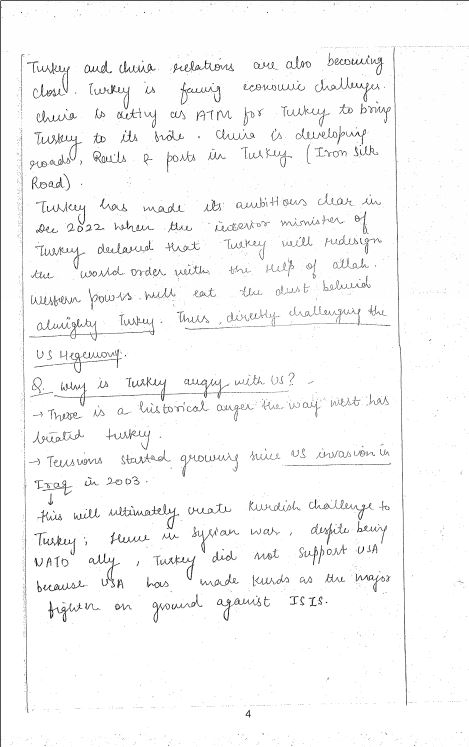 Turkey and China relations are also becoming
close. Turkey is facing economic challenges.
China is acting as ATM for Turkey to bring
Turkey to its side. China is developing
roads, Rails & ports in Turkey (Iron Silk
Road).
Turkey has made its ambitious clear in
Dec 2022 when the interior minister of
Turkey declared that Turkey will redesign
the world order with the Help of allah.
Western powers will eat the dust behind
almighty Turkey. Thus, directly challenging the
US Hegemony.
Q. Why is Turkey angry with US? -
→ There is a historical anger the way west has
treated turkey.
→ Tensions started growing since US invasion in
Iraq in 2003.
↓
this will ultimately create Kurdish challenge to
Turkey; Hence in Syrian war, despite being
NATO ally, Turkey did not support USA
because USA has made Kurds as the major
fighter on ground against ISIS.
4